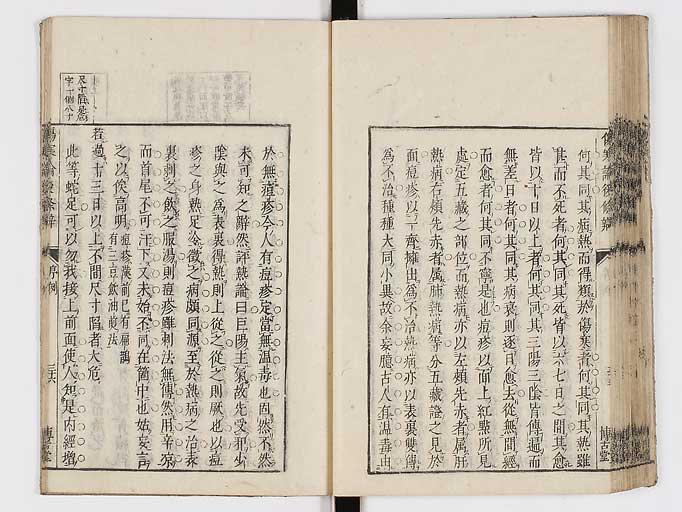 何其同其病熱而得類於傷寒者何其同其熱雖
其而不死者何其同其死皆以六七日之間其愈
皆以十日以上者何其同其三陽三陰皆傳遍而
無差日者何其同其病衰則逐日愈去從無間經
而愈者何其同不寧是也痘疹以面上紅點所見
處定五藏之部位而熱病亦以左頰先赤者屬肝
熱病右頰先赤者屬肺熱病等分五藏證之見於
面痘疹以一齊擁出為不治熱病亦以表裏雙傳
為不治種種大同小異故余妄臆古人有溫毒由
於無痘疹今人有痘疹定當無溫毒也固然不然
未可知之辭然評熱論曰巨陽主氣故先受邪少
陰與之為表裏得熱則上從之從之則厥也以痘
疹之身熱足冷徵之病頗同源至於熱病之治表
裏刺之飲之服湯則痘疹雖刺法無傳然用辛涼
而首尾不可汗下又未始不同在箇中也姑妄言
之以俟高明
痘疹漢前已有扁鵲
有三豆飲油劑法
若過十三日以上不間尺寸陷者大危
此等蛇足可以勿我接上前面使人知是內經增
尺寸陷是危
字一個八寸
序例
博古堂
博古堂